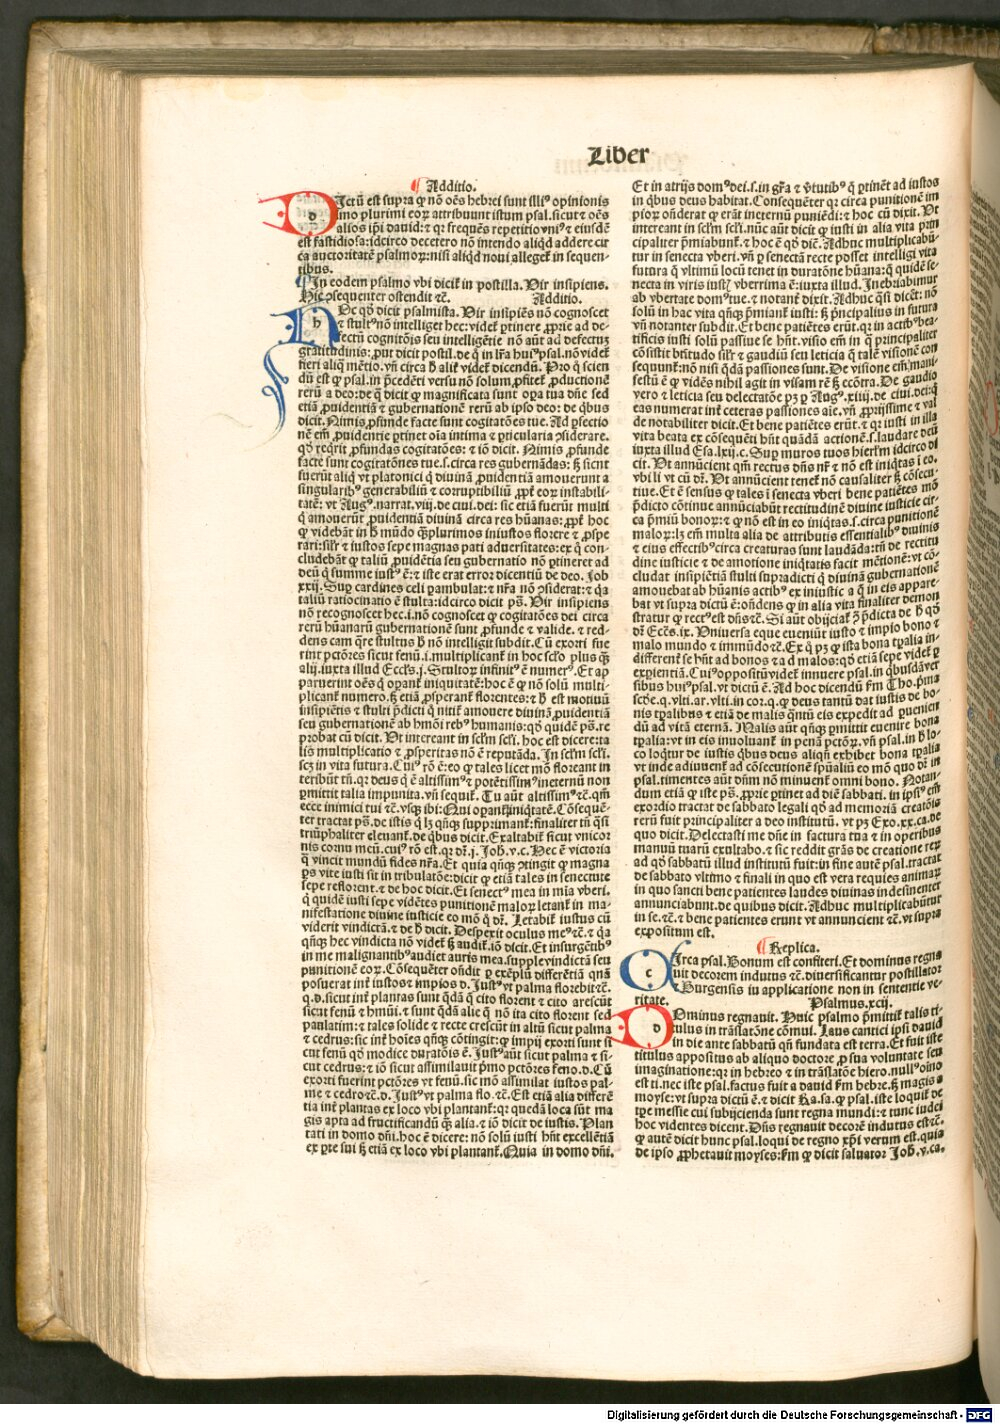 Liber
¶ Additio.
DIctū est supra ꝙ nō oēs hebrei sunt illiꝰ opinionis
imo plurimi eoꝝ attribuunt istum psal. sicut ⁊ oēs
alios ip̄i dauid: ⁊ qꝛ frequēs repetitio vniꝰ ⁊ eiusdē
est fastidiosa: idcirco decetero nō intendo aliqd addere cir
ca auctoritatē psalmoꝝ: nisi aliqd noui allegeꝉ in sequen-
tibus.
¶ In eodem psalmo vbi diciꝉ in postilla. Vir insipiens.
Hic ꝯsequenter ostendit ⁊c. Additio.
DE eo qd dicit psalmista. Vir insipiēs nō cognoscet
⁊ stultꝰ nō intelliget hec: videꝉ ꝑtinere ꝓprie ad de-
fectū cognitōis seu intelligētie nō aūt ad defectuȝ
gratitudinis: ꝓut dicit postil. de q̄ in lr̄a huiꝰ psal. nō videꝉ
fieri aliq̄ mētio. vn̄ circa h̄ aliꝉ videꝉ dicendū. Pro q̄ scien
dū est ꝙ psal. in p̄cedēti versu nō solum ꝓfiteꝉ ꝓductionē
rerū a deo: de q̄ dicit ꝙ magnificata sunt opa tua dn̄e sed
etiā ꝓuidentiā ⁊ gubernationē rerū ab ipso deo: de qbus
dicit. Nimis ꝓfunde facte sunt cogitatōes tue. Ad ꝑfectio
nē em̄ ꝓuidentie ꝑtinet oīa intima ⁊ ꝑticularia ꝯsiderare.
qd reqrit ꝓfundas cogitatōes: ⁊ iō dicit. Nimis ꝓfunde
facte sunt cogitatōnes tue. s. circa res gubernādas: sꝫ sicut
fuerūt aliq̄ vt platonici q̄ diuinā ꝓuidentiā amouerunt a
singularibꝰ generabiliū ⁊ corruptibiliū ꝓpꝉ eoꝝ instabili-
tatē: vt Augꝰ. narrat. viij. de ciui. dei: sic etiā fuerūt multi
q̄ amouerūt ꝓuidentiā diuinā circa res hūanas: ꝓpꝉ hoc
ꝙ videbāt in h̄ mūdo q̄plurimos iniustos florere ⁊ ꝓspe
rari: silr̄ ⁊ iustos sepe magnas pati aduersitates: ex q̄ con-
cludebāt ꝙ taliū ꝓuidētia seu gubernatio nō ꝑtineret ad
deū q̄ summe iustꝰ ē: ⁊ iste erat error dicentiū de deo. Job
xxij. Sup cardines celi ꝑambulat: ⁊ nr̄a nō ꝯsiderat: ⁊ q̄a
taliū ratiocinatio ē stulta: idcirco dicit ps̄. Vir insipiens
nō recognoscet hec. i. nō cognoscet ꝙ cogitatōes dei circa
rerū hūanarū gubernationē sunt ꝓfunde ⁊ valide. ⁊ red-
dens cam q̄re stultus h̄ nō intelligit subdit. Cū exorti fue
rint pctōres sicut fenū. i. multiplicanꝉ in hoc sclo plus q̄ꝫ
alij. iuxta illud Eccls. j. Stultoꝝ infinitꝰ ē numerꝰ. Et ap
paruerint oēs q̄ opanꝉ iniquitatē: hoc ē ꝙ nō solū multi-
plicanꝉ numero. sꝫ etiā ꝓsperanꝉ florentes: ⁊ h̄ est motiuū
insipiētis ⁊ stulti p̄dicti q̄ nitiꝉ amouere diuinā ꝓuidentiā
seu gubernationē ab hmōi rebꝰ humanis: qd quidē ps̄. re
probat cū dicit. Vt intereant in sclm̄ scli̅. hoc est dicere: ta
lis multiplicatio ⁊ ꝓsperitas nō ē reputāda. In sclm̄ scli̅.
scꝫ in vita futura. Cuiꝰ rō ē: eo ꝙ tales licet mō floreant in
teribūt tn̄. qꝛ deus q̄ ē altissimꝰ ⁊ potētissimꝰ ineternū non
ꝑmittit talia impunita. vn̄ sequiꝉ. Tu aūt altissimꝰ ⁊c. qm̄
ecce inimici tui ⁊c. vsqꝫ ibi: Qui opanꝉ iniqtatē. Cōseque-
ter tractat ps̄. de istis q̄ lꝫ qn̄qꝫ supprimanꝉ: finaliter tn̄ q̄si
triūphaliter eleuanꝉ. de qbus dicit. Exaltabiꝉ sicut vnicor
nis cornu meū. cuiꝰ rō est. qꝛ dr̄. j. Joh̄. v. c. Hec ē victoria
q̄ vincit mundū fides nr̄a. Et quia qn̄qꝫ ꝯtingit ꝙ magna
ps vite iusti sit in tribulatōe: dicit ꝙ etiā tales in senectute
sepe reflorent. ⁊ de hoc dicit. Et senectꝰ mea in mīa vberi.
q̄ quidē iusti sepe vidētes punitionē maloꝝ letanꝉ in ma-
nifestatione diuine iusticie eo mō q̄ dr̄. Letabiꝉ iustus cū
viderit vindictā. ⁊ de h̄ dicit. Despexit oculus meꝰ ⁊c. ⁊ q̄a
qn̄qꝫ hec vindicta nō videꝉ sꝫ audiꝉ. iō dicit. Et insurgētibꝰ
in me malignantibꝰ audiet auris mea. supple vindictā seu
punitionē eoꝝ. Cōsequēter on̄dit ꝑ exēplū differētiā quā
posuerat inꝉ iustos ⁊ impios d. Justꝰ vt palma florebit ⁊c.
q. d. sicut inꝉ plantas sunt q̄dā q̄ cito florent ⁊ cito arescūt
sicut fenū ⁊ hmōi. ⁊ sunt q̄dā alie q̄ nō ita cito florent sed
paulatim: ⁊ tales solide ⁊ recte crescūt in altū sicut palma
⁊ cedrus: sic inꝉ hoīes qn̄qꝫ cōtingit: ꝙ impij exorti sunt si
cut fenū qd modice duratōis ē. Justꝰ aūt sicut palma ⁊ si-
cut cedrus: ⁊ iō sicut assimilauit p̄mo pctōres feno. d. Cū
exorti fuerint pctōres vt fenū. sic mō assimilat iustos pal-
me ⁊ cedro ⁊c. d. Justꝰ vt palma flo. ⁊c. Est etiā alia differē
tia inꝉ plantas ex loco vbi plantanꝉ: qꝛ quedā loca sūt ma
gis apta ad fructificandū q̄ꝫ alia. ⁊ iō dicit de iustis. Plan
tati in domo dn̄i. hoc ē dicere: nō solū iusti hn̄t excellētiā
ex ꝑte sui sꝫ etiā ex loco vbi plantanꝉ. Quia in domo dn̄i.
Et in atrijs domꝰ dei. s. in gr̄a ⁊ v̄tutibꝰ q̄ ꝑtinēt ad iustos
in qbus deus habitat. Consequēter qꝛ circa punitionē im
pioꝝ on̄derat ꝙ erāt ineternū puniēdi: ⁊ hoc cū dixit. Vt
intereant in sclm̄ scli̅. nūc aūt dicit ꝙ iusti in alia vita prin
cipaliter p̄miabunꝉ. ⁊ hoc ē qd dic̄. Adhuc multiplicabū-
tur in senecta vberi. vn̄ ꝑ senectā recte posset intelligi vita
futura q̄ vltimū locū tenet in duratōne hūana: q̄ quidē se-
necta in viris iustꝭ vberrima ē: iuxta illud. Inebriabimur
ab vbertate domꝰ tue. ⁊ notanꝉ dixit. Adhuc q̄si dicēt: nō
solū in hac vita qn̄qꝫ p̄mianꝉ iusti: sꝫ p̄ncipalius in futura
vn̄ notanter subdit. Et bene patiētes erūt. qꝛ in actibꝰ bea-
tificis iusti solū passiue se hn̄t. visio em̄ in q̄ principaliter
cōsistit btītudo silr̄ ⁊ gaudiū seu leticia q̄ talē visionē con
sequunꝉ: nō nisi q̄dā passiones sunt. De visione em̄ mani-
festū ē ꝙ vidēs nihil agit in visam rē sꝫ ecōtra. De gaudio
vero ⁊ leticia seu delectatōe pꝫ ꝑ Augꝰ. xiiij. de ciui. dei: q̄
eas numerat inꝉ ceteras passiones aīe. vn̄ ꝓprijssime ⁊ val
de notabiliter dicit. Et bene patiētes erūt. ⁊ qꝛ iusti in illa
vita beata ex cōsequēti hn̄t quādā actionē. s. laudare deū
iuxta illud Esa. lxij. c. Sup muros tuos hierlm̄ idcirco di
cit. Vt annūcient qm̄ rectus dn̄s nr̄ ⁊ nō est iniqtas ī eo.
vbi li vt cū dr̄. Vt annūcient teneꝉ nō causaliter sꝫ cōsecu-
tiue. Et ē sensus ꝙ tales ī senecta vberi bene patiētes mō
p̄dicto cōtinue annūciabūt rectitudinē diuine iusticie cir-
ca p̄miū bonoꝝ: ⁊ ꝙ nō est in eo iniqtas. s. circa punitionē
maloꝝ: lꝫ em̄ multa alia de attributis essentialibꝰ diuinis
⁊ eius effectibꝰ circa creaturas sunt laudāda: tn̄ de rectitu
dine iusticie ⁊ de amotione iniqtatis facit mētionē: vt cō-
cludat insipiētiā stulti supradicti q̄ diuinā gubernationē
amouebat ab hūanis actibꝰ ex iniustic a q̄ in eis appare-
bat vt supra dictū ē: on̄dens ꝙ in alia vita finaliter demon
stratur ꝙ rectꝰ est dn̄s ⁊c. Si aūt obijciaꝉ ꝯ p̄dicta de h̄ qd
dr̄ Eccls. ix. Vniuersa eque eueniūt iusto ⁊ impio bono ⁊
malo mundo ⁊ immūdo ⁊c. Ex q̄ pꝫ ꝙ ista bona tpalia in-
differenꝉ se hn̄t ad bonos ⁊ a d malos: qd etiā sepe videꝉ ꝑ
expientiā. Cuiꝰ oppositū videꝉ innuere psal. in q̄busdā ver
sibus huiꝰ psal. vt dictū ē. Ad hoc dicendū fm̄ Tho. p̄ma
scd̄e. q. vlti. ar. vlti. in cor. q. ꝙ deus tantū dat iustis de bo-
nis tpalibus ⁊ etiā de malis q̄ntū eis expedit ad ꝑuenien
dū ad vitā eternā. Malis aūt qn̄qꝫ ꝑmittit euenire bona
tpalia: vt in eis inuoluanꝉ in penā pctōꝝ. vn̄ psal. in h̄ lo-
co loqtur de iustis q̄bus deus aliqn̄ exhibet bona tpalia
vt inde adiuuenꝉ ad cōsecutionē spūaliū eo mō quo dr̄ in
psal. timentes aūt dn̄m nō minuenꝉ omni bono. Notan-
dum etiā ꝙ iste ps̄. ꝓprie ꝑtinet ad diē sabbati. in ipsiꝰ em̄
exordio tractat de sabbato legali qd ad memoriā creatōis
rerū fuit principaliter a deo institutū. vt pꝫ Exo. xx. ca. de
quo dicit. Delectasti me dn̄e in factura tua ⁊ in operibus
manuū tuarū exultabo. ⁊ sic reddit grās de creatione reꝝ
ad qd sabbatū illud institutū fuit: in fine autē psal. tractat
de sabbato vltimo ⁊ finali in quo est vera requies animaꝝ
in quo sancti bene patientes laudes diuinas indesinenter
annunciabunt. de quibus dicit. Adhuc multiplicabūtur
in se. ⁊c. ⁊ bene patientes erunt vt annuncient ⁊c. vt supra
expositum est.
¶ Replica.
CIrca psal. Bonum est confiteri. Et dominus regna
uit decorem indutus ⁊c. diuersificantur postillator
⁊ Burgensis in applicatione non in sententie ve-
ritate. Psalmus. xcij.
DOminus regnauit. Huic psalmo p̄mittiꝉ talis ti-
tulus in trāslatōne cōmui. Laus cantici ipsi dauid
in die ante sabbatū qn̄ fundata est terra. Et fuit iste
titulus appositus ab aliquo doctore ꝓ sua voluntate seu
imaginatione: qꝛ in hebreo ⁊ in trāslatōe hiero. nullꝰ oīno
est ti. nec iste psal. factus fuit a dauid fm̄ hebre. sꝫ magis a
moyse: vt supra dictū ē. ⁊ dicit Ra. sa. ꝙ psal. iste loquiꝉ de
tpe messie cui subijcienda sunt regna mundi: ⁊ tunc iudei
hoc videntes dicent. Dn̄s regnauit decorē indutus est ⁊c.
ꝙ autē dicit hunc psal. loqui de regno xp̄i verum est. quia
de ipso ꝓphetauit moyses: fm̄ ꝙ dicit saluator Joh̄. v. ca.
Digitalisierung gefördert durch die Deutsche Forschungsgemeinschaft - DFG